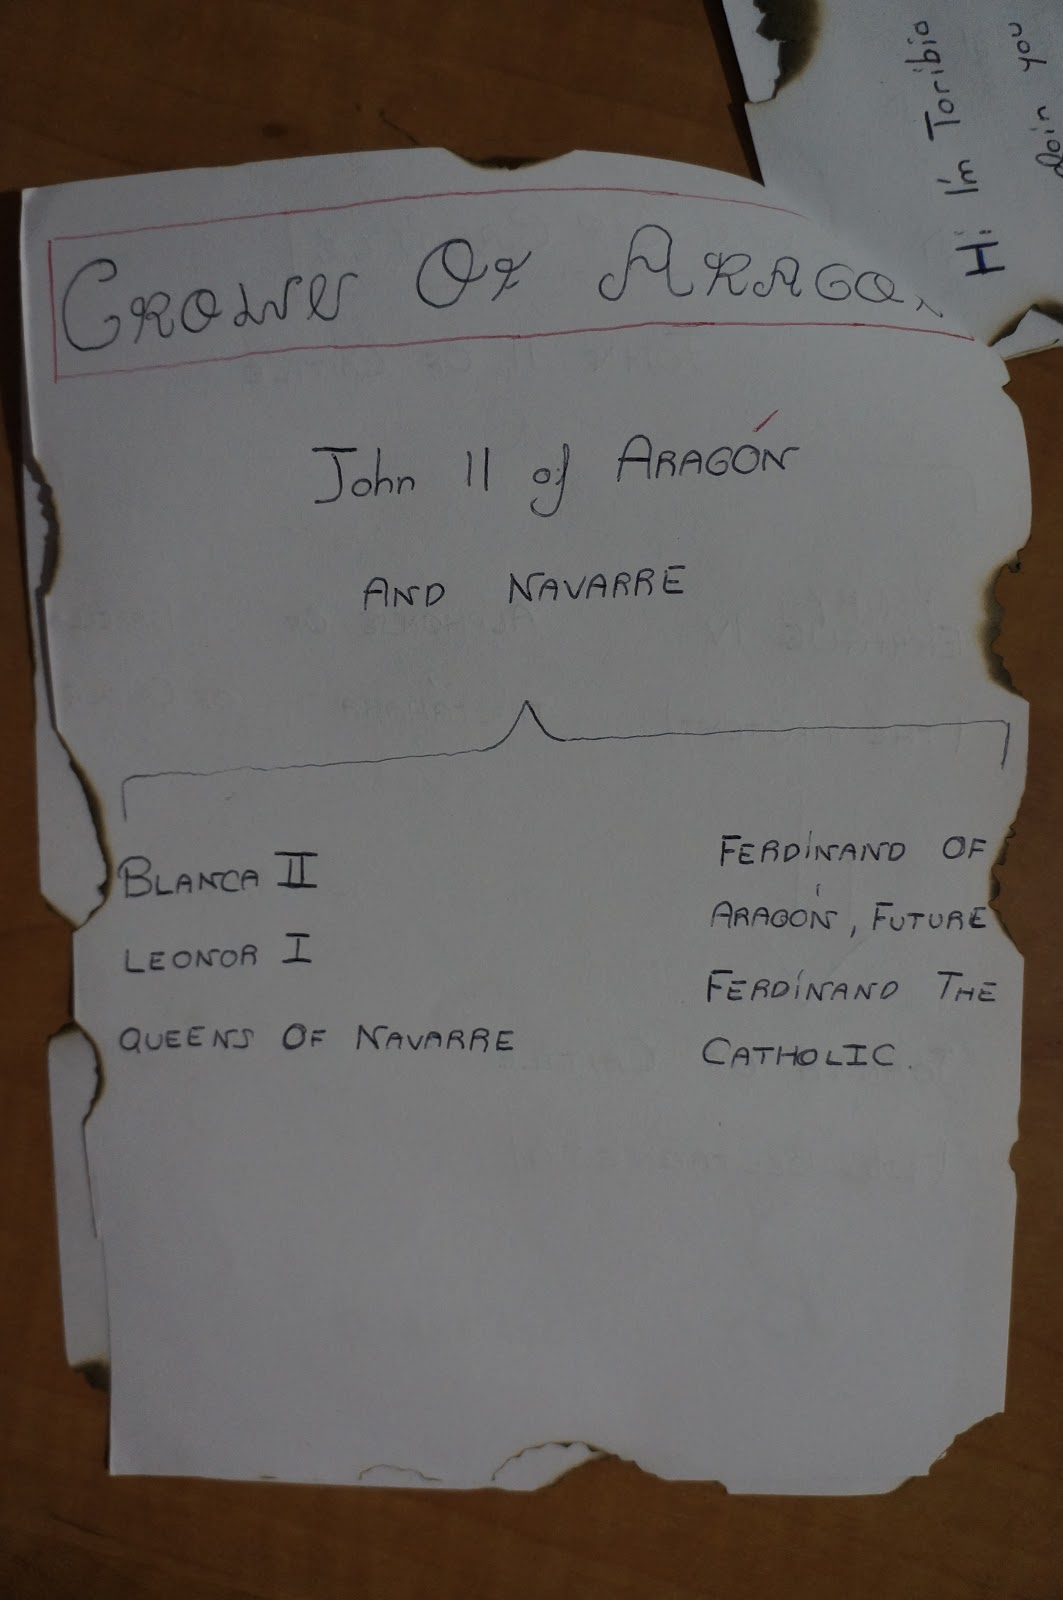 CROWN OF ARAGO
John II of ARAGÓN
AND NAVARRE
BLANCA II
LEONOR I
QUEENS OF NAVARRE
FERDINAND OF
ARAGÓN, FUTURE
FERDINAND THE
CATHOLIC.
Hi I'm Toribio
you